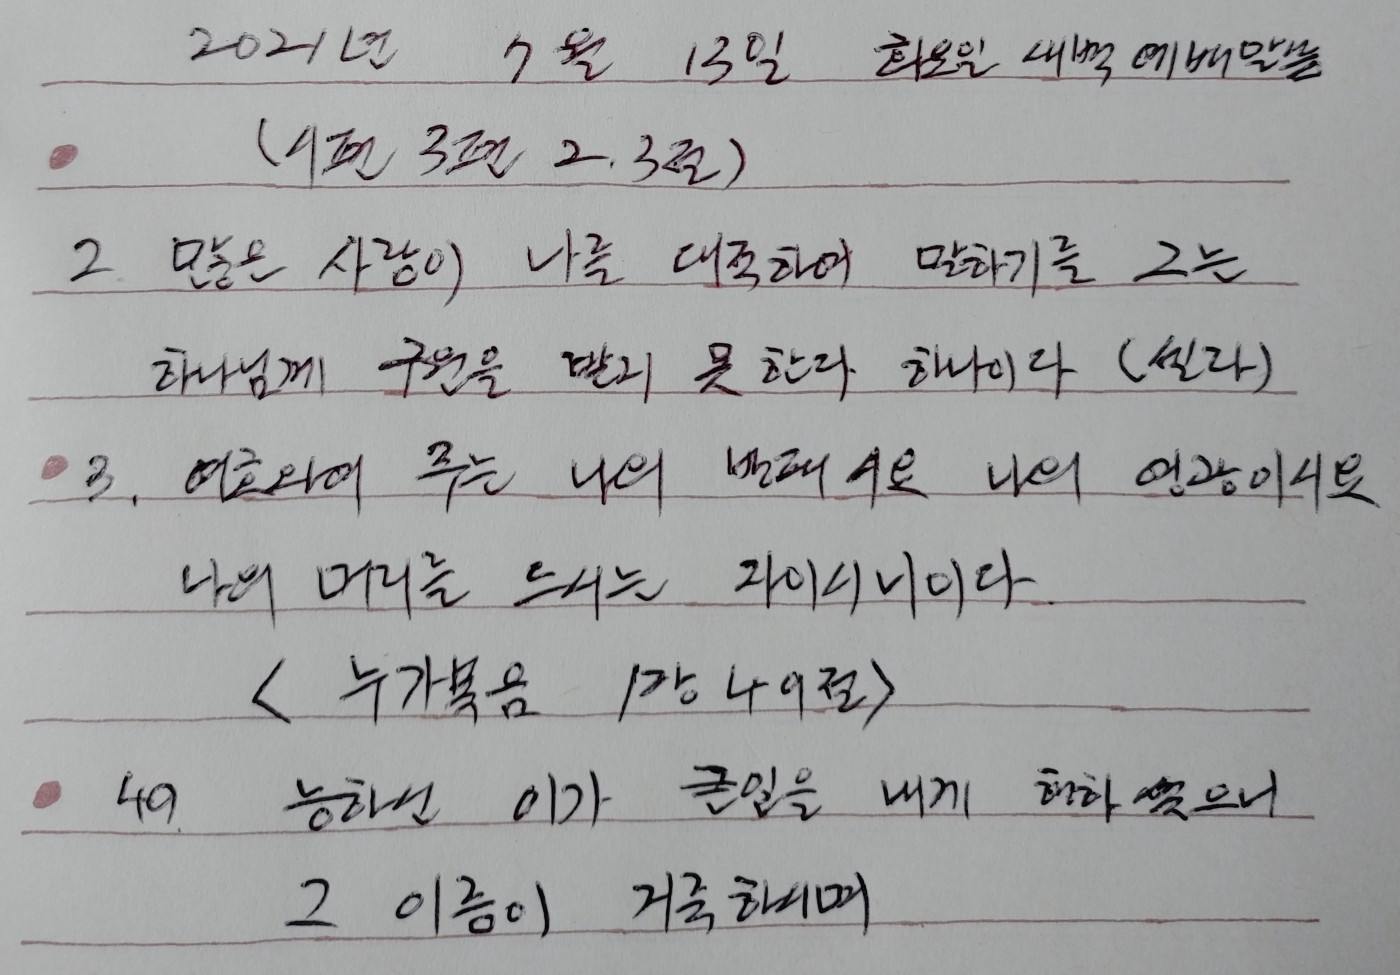 2021년 7월 13일 화요일 새벽예배말씀
(시편 3편 2. 3절)
2. 많은 사람이 나를 대적하여 말하기를 그는
하나님께 구원을 받지 못한다 하나이다 (셀라)
3. 여호와여 주는 나의 방패시요 나의 영광이시요
나의 머리를 드시는 자이시니이다.
< 누가복음 1장 49절>
49. 능하신 이가 큰일을 내게 행하셨으니
그 이름이 거룩하시며